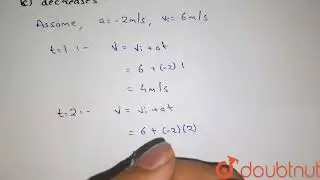 k) decreases
Assume, a=-2m/s, vi=6m/s
t=1:- v = vi+at
= 6 + (-2) 1
= 4m/s
t=2:- v = vi+at
= 6 + (-2)(2)
doubtnut